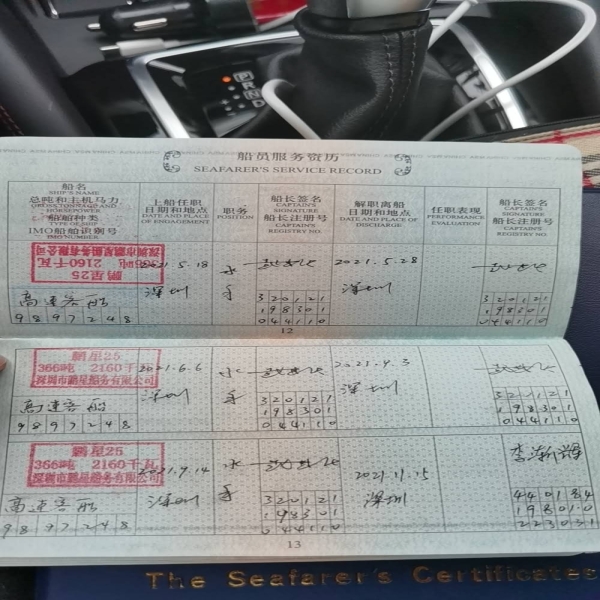 P
R
N
D
船员服务资历
SEAFARER'S SERVICE RECORD
船名
SHIP'S NAME
总吨和主机马力
GROSS TONNAGE AND HORSEPOWER
船舶种类
TYPE OF SHIP
IMO船舶识别号
IMO NUMBER
上船任职日期和地点
DATE AND PLACE OF ENGAGEMENT
职务
POSITION
船长签名
CAPTAIN'S SIGNATURE
船长注册号
CAPTAIN'S REGISTRY NO.
解职离船日期和地点
DATE AND PLACE OF DISCHARGE
任职表现
PERFORMANCE EVALUATION
船长签名
CAPTAIN'S SIGNATURE
船长注册号
CAPTAIN'S REGISTRY NO.
鹏星25
2160千瓦
深圳市鹏星船务有限公司
高速客船
9897248
2021.5.18
深圳
水手
320121
198301
044110
2021.5.28
深圳
320121
198301
044110
12
鹏星25
366吨 2160千
深圳市鹏星船务有限公司
高速客船
9897248
2021.6.6
深圳
水手
320121
198301
044110
2021.9.3
深圳
198301
044110
鹏星25
366吨 2160千瓦
深圳市鹏星船务有限公司
高速客船
9897248
2021.9.14
深圳
水手
320121
198301
044110
2021.11.15
深圳
440184
198010
223031
13
The Seafarer's Certificates